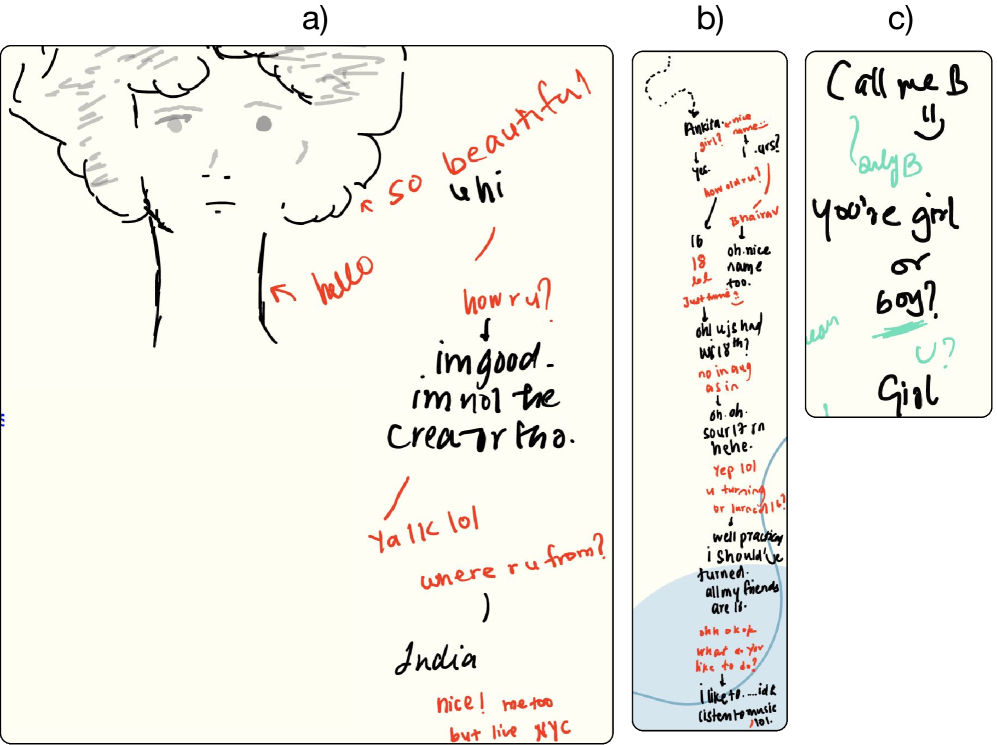 a)
so beautiful
hello
hi
how r u?
im good.
im not the
creator tho.
Ya Ik lol
where r u from?
India
nice! me too
but live NYC
b)
nice
girl? name
yes. urs?
how old r u?
Bhairav
16
18
lol
oh. nice
name
too.
Just turned
oh! u js had
ur 18th?
no in aug
as in
oh. oh.
so ur 17 rn
hehe.
Yep lol
u turning
or turned 16?
well
i should've
turned.
all my friends
are 16.
ohh ok ok
what do you
like to do?
i like to.....idk
listen to music
lol.
c)
Call me B
only B
you're girl
or
boy?
U?
Girl